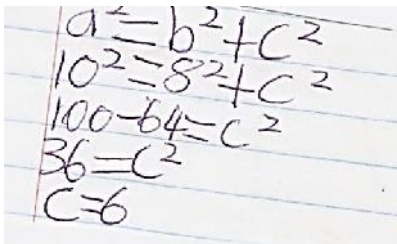 a²=b²+c²
10²=8²+c²
100-64=c²
36=c²
c=6